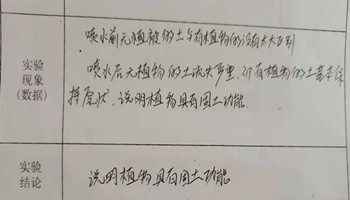 喷水前无植被的土与有植物的没有太大区别
实验
现象
(数据)
喷水后无植物的土流失严重,而有植物的土基本保
持原状,说明植物具有固土功能.
实验
结论
说明植物具有固土功能